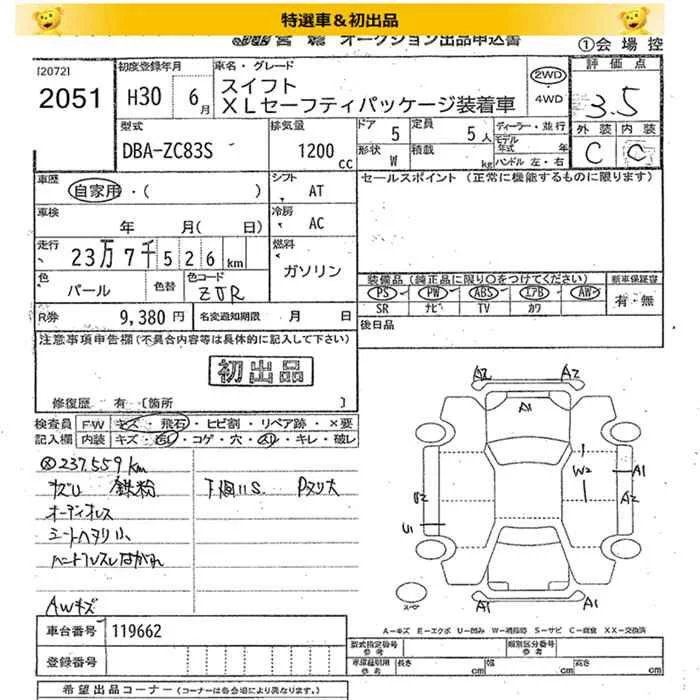 特選車＆初出品
オークション出品申込書
①会場控
[2072]
2051
初度登録年月
H30 6月
車名・グレード
スイフト
XLセーフティパッケージ装着車
2WD
4WD
評価点
3.5
外装 内装
C C
型式
DBA-ZC83S
排気量
1200 cc
ドア 5
定員 5人
形状 W
積載 kg
ディーラー・並行
モデル年式 年
ハンドル 左・右
車歴
自家用・( )
シフト AT
セールスポイント (正常に機能するものに限ります)
車検
年 月( 日)
冷房 AC
走行
23万7千526km
燃料
ガソリン
色
パール
色替
色コード
ZJR
装備品 (純正品に限り○をつけてください)
新車保証書
PS PW ABS エアB AW
SR ナビ TV カワ
有・無
R券 9,380円
名変通知期限 月 日
後日品
注意事項申告欄 (不具合内容等は具体的に記入して下さい)
初出品
修復歴 有 [箇所 ]
検査員記入欄
FW キズ・飛石・ヒビ割・リペア跡・×要
内装 キズ・汚・コゲ・穴・スレ・キレ・破レ
237.559km
鉄粉
下回りS.
オーディオレス
AWキズ
A2 A2
A1
W2
A1
A2
U1
A1 A1
スペア
A－キズ E－エクボ U－凹み W－補修跡 S－サビ C－腐食 XX－交換済
車台番号 119662
登録番号
型式指定番号
参考
類別区分番号
参考
長さ cm
幅 cm
高さ cm
希望出品コーナー (コーナーは各会場により異なります。)